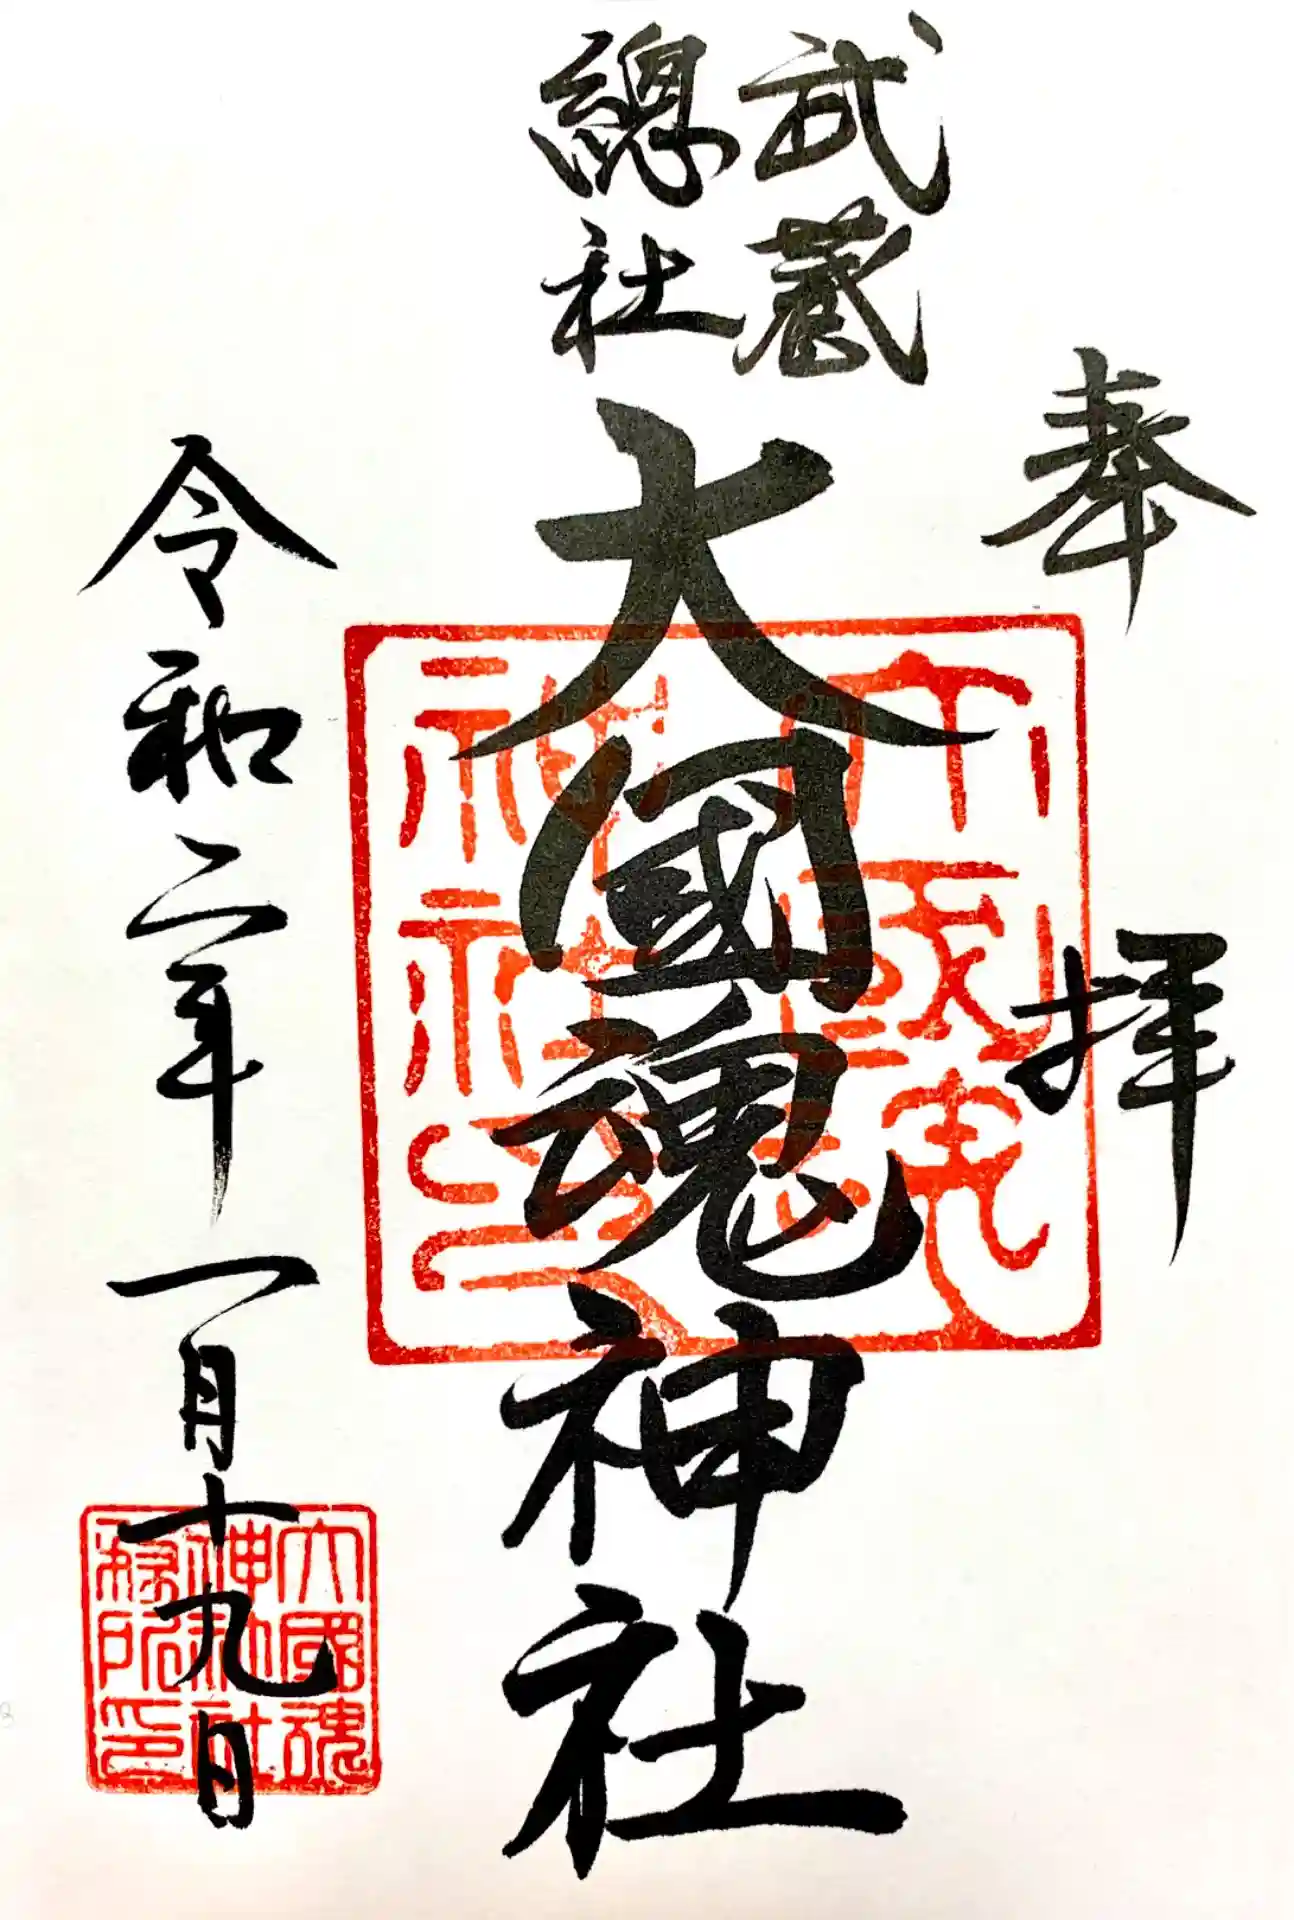 奉拝
武蔵
總社
大國魂神社
令和二年一月十九日
大國魂
神社社
務所印